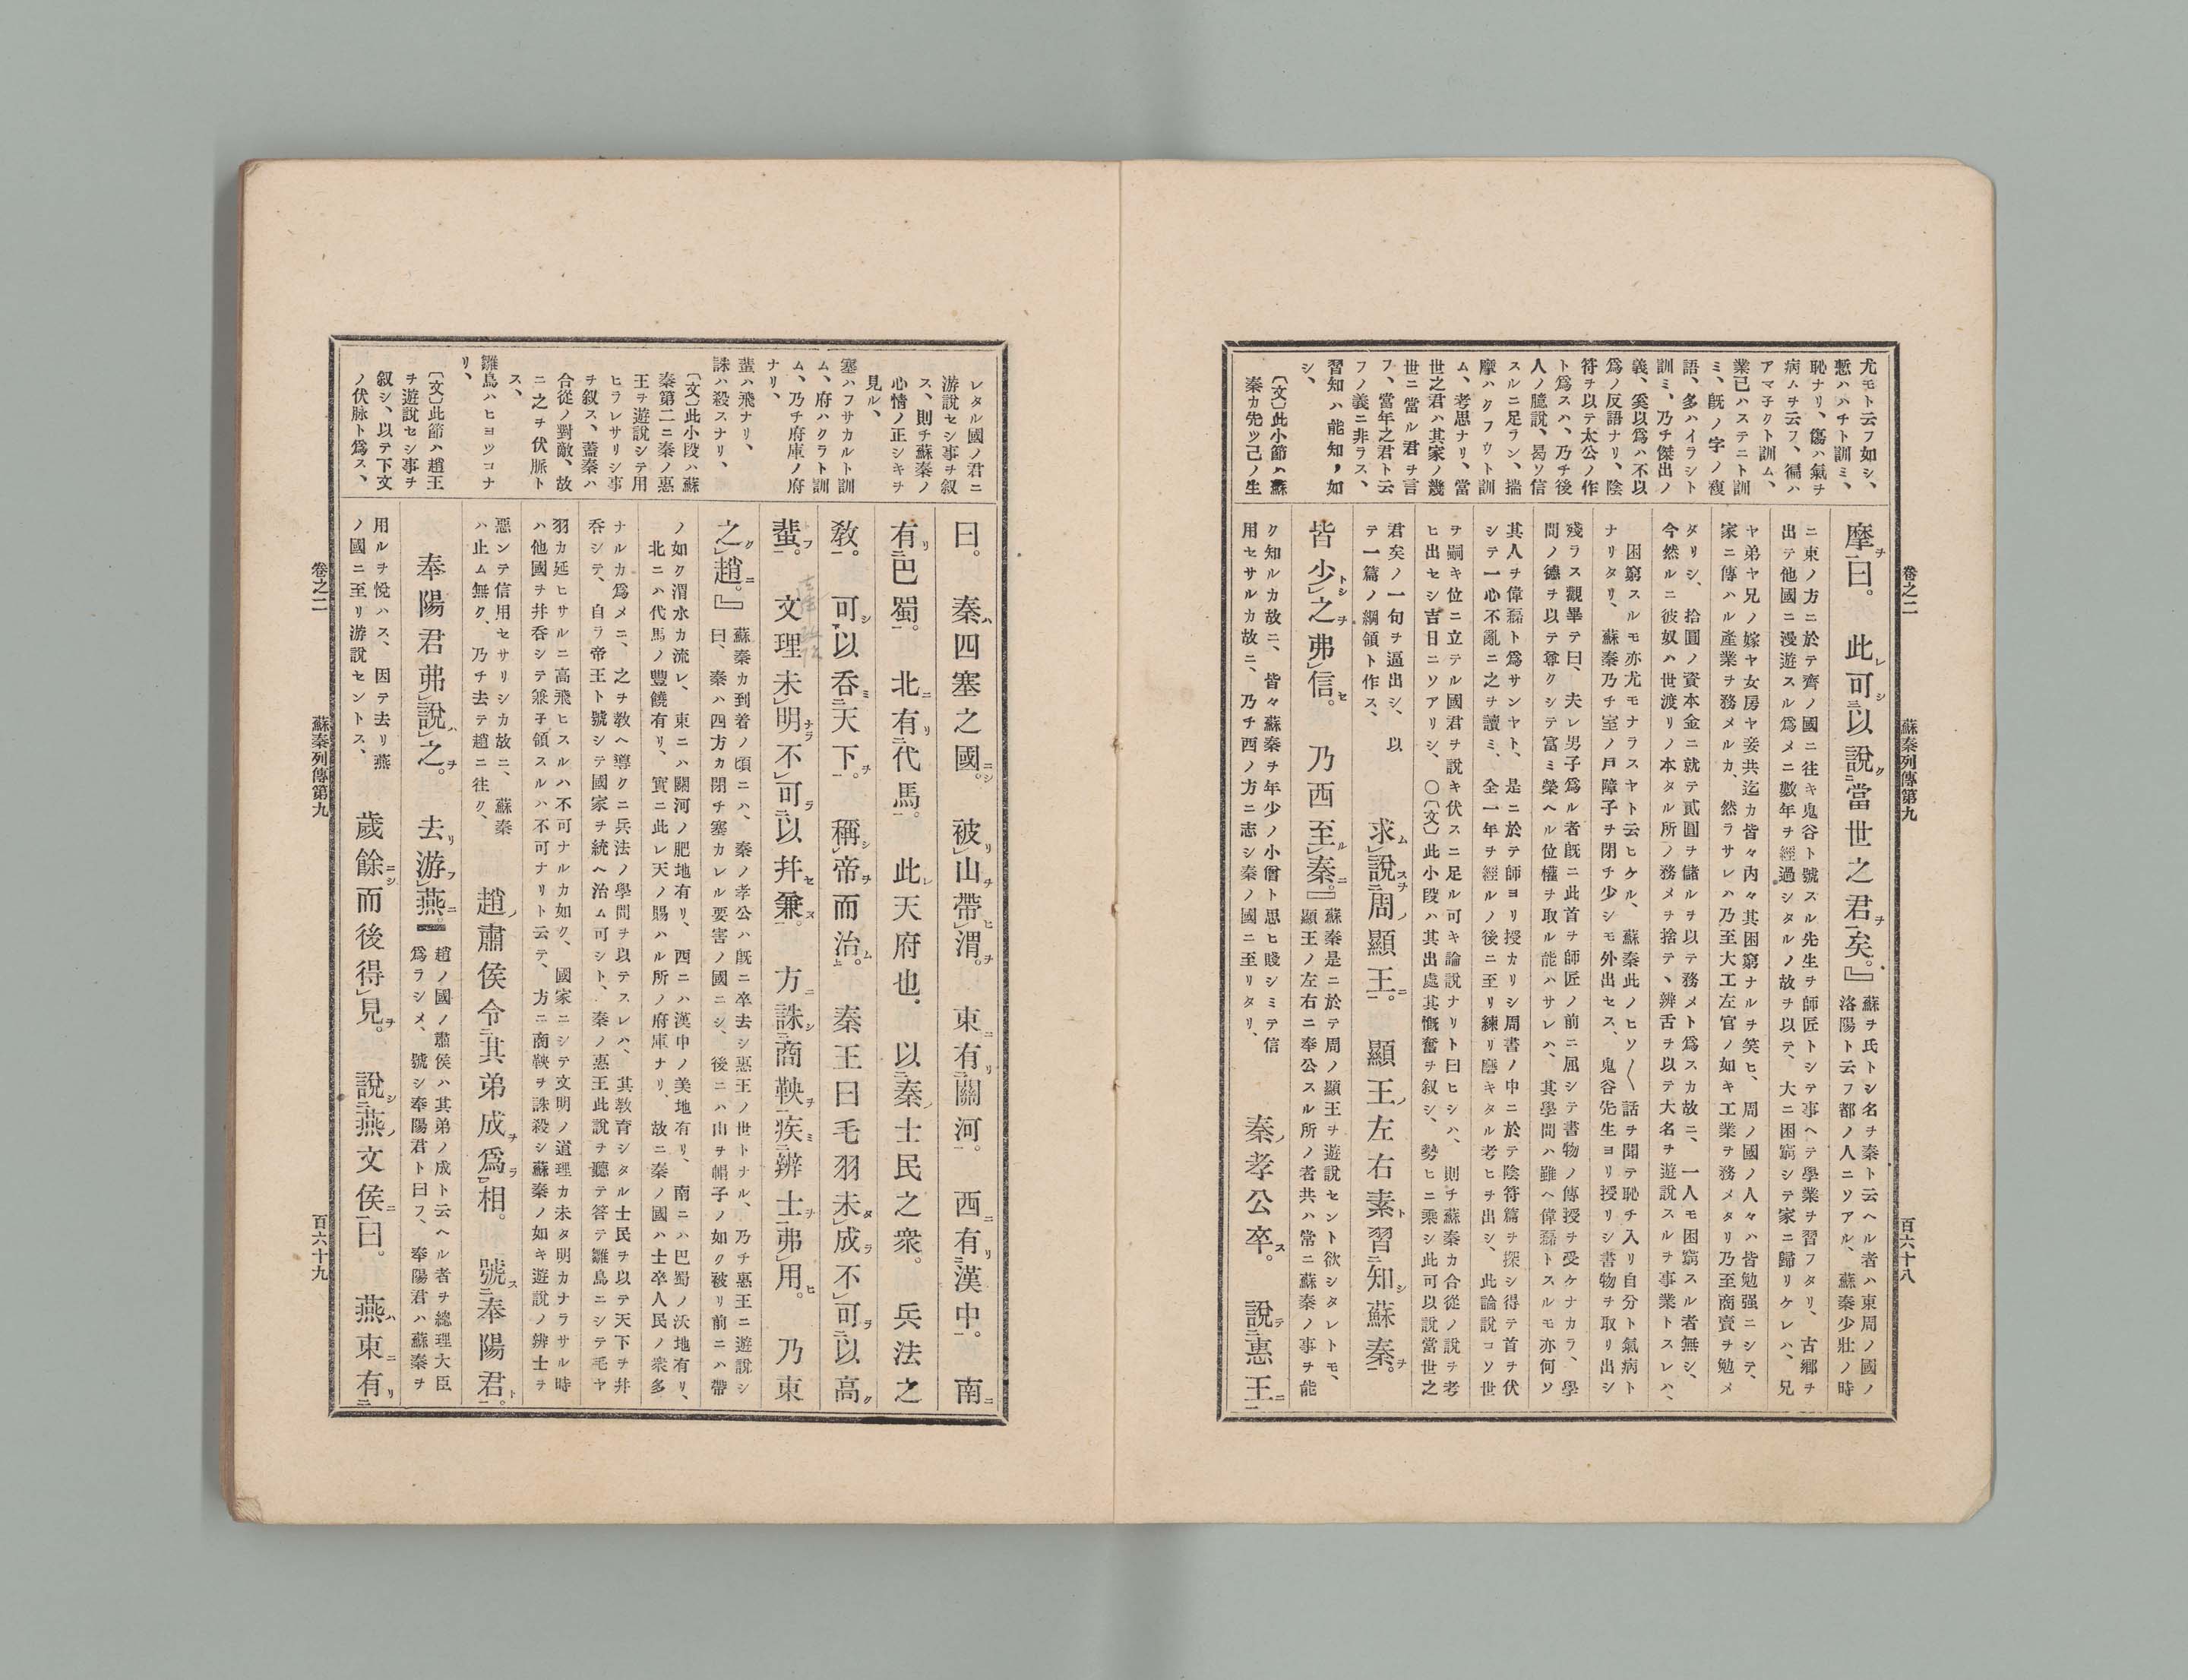 尤モト云フ如シ、
慙ハハチト訓ミ、
恥ナリ、傷ハ氣ヲ
病ムヲ云フ、徧ハ
アマ子クト訓ム、
業已ハステニト訓
ミ、既ノ字ノ複
語、多ハイラシト
訓ミ、乃チ傑出ノ
義、奚以爲ハ不以
爲ノ反語ナリ、陰
符ヲ以テ太公ノ作
ト爲スハ、乃チ後
人ノ臆說、曷ソ信
スルニ足ラン、揣
摩ハクフウト訓
ム、考思ナリ、當
世之君ハ其家ノ幾
世ニ當ル君ヲ言
フ、當年之君ト云
フノ義ニ非ラス、
習知ハ能知,如
シ、
〔文〕此小節ハ蘇
秦カ先ツ己ノ生
摩ヲ一曰。此レ可シ三以說ク二當世之君ヲ一矣。』
蘇ヲ氏トシ名ヲ秦ト云ヘル者ハ東周ノ國ノ
洛陽ト云フ都ノ人ニソアル、蘇秦少壯ノ時
ニ東ノ方ニ於テ齊ノ國ニ往キ鬼谷ト號スル先生ヲ師匠トシテ事ヘテ學業ヲ習フタリ、古鄕ヲ
出テ他國ニ漫遊スル爲メニ數年ヲ經過シタルノ故ヲ以テ、大ニ困窮シテ家ニ歸リケレハ、兄
ヤ弟ヤ兄ノ嫁ヤ女房ヤ妾共迄カ皆々內々其困窮ナルヲ笑ヒ、周ノ國ノ人々ハ皆勉强ニシテ、
家ニ傳ハル產業ヲ務メルカ、然ラサレハ乃至大工左官ノ如キ工業ヲ務メタリ乃至商賣ヲ勉メ
タリシ、拾圓ノ資本金ニ就テ貳圓ヲ儲ルヲ以テ務メト爲スカ故ニ、一人モ困窮スル者無シ、
今然ルニ彼奴ハ世渡リノ本タル所ノ務メヲ捨テヽ辨舌ヲ以テ大名ヲ遊說スルヲ事業トスレハ、
困窮スルモ亦尤モナラスヤト云ヒケル、蘇秦此ノヒソ〳〵話ヲ聞テ恥チ入リ自分ト氣病ト
ナリタリ、蘇秦乃チ室ノ戶障子ヲ閉チ少シモ外出セス、鬼谷先生ヨリ授リシ書物ヲ取リ出シ
殘ラス觀畢テ曰、夫レ男子爲ル者既ニ此首ヲ師匠ノ前ニ屈シテ書物ノ傳授ヲ受ケナカラ、學
問ノ德ヲ以テ尊クシテ富ミ榮ヘル位權ヲ取ル能ハサレハ、其學問ハ雖ヘ偉磊トスルモ亦何ソ
其人ヲ偉磊ト爲サンヤト、是ニ於テ師ヨリ授カリシ周書ノ中ニ於テ陰符篇ヲ探シ得テ首ヲ伏
シテ一心不亂ニ之ヲ讀ミ、全一年ヲ經ルノ後ニ至リ練リ磨キタル考ヒヲ出シ、此論說コソ世
ヲ嗣キ位ニ立テル國君ヲ說キ伏スニ足ル可キ論說ナリト曰ヒシハ、則チ蘇秦カ合從ノ說ヲ考
ヒ出セシ吉日ニソアリシ、〇〔文〕此小段ハ其出處其慨奮ヲ叙シ、勢ヒニ乘シ此可以說當世之
君矣ノ一句ヲ逼出シ、以
テ一篇ノ綱領ト作ス、
求ム說スヲ二周ノ顯王ニ一。顯王ノ左右素ト習二知シ蘇秦ヲ一。
皆少トシ之ヲ弗信セ。乃西至ル秦ニ。』
蘇秦是ニ於テ周ノ顯王ヲ遊說セント欲シタレトモ、
顯王ノ左右ニ奉公スル所ノ者共ハ常ニ蘇秦ノ事ヲ能
ク知ルカ故ニ、皆々蘇秦ヲ年少ノ小僧ト思ヒ賤シミテ信
用セサルカ故ニ、乃チ西ノ方ニ志シ秦ノ國ニ至リタリ、
秦ノ孝公卒ス。說テ二惠王ニ一
卷之二
蘇秦列傳第九
百六十八
レタル國ノ君ニ
游說セシ事ヲ叙
ス、則チ蘇秦ノ
心情ノ正シキヲ
見ル、
塞ハフサカルト訓
ム、府ハクラト訓
ム、乃チ府庫ノ府
ナリ、
蜚ハ飛ナリ、
誅ハ殺スナリ、
〔文〕此小段ハ蘇
秦第二ニ秦ノ惠
王ヲ遊說シテ用
ヒラレサリシ事
ヲ叙ス、蓋秦ハ
合從ノ對敵、故
ニ之ヲ伏脈ト
ス、
雛鳥ハヒヨツコナ
リ、
〔文〕此節ハ趙王
ヲ遊說セシ事ヲ
叙シ、以テ下文
ノ伏脉ト爲ス、
曰。秦ハ四塞之國ニシ。被リ山ヲ帶ヒ渭ヲ。東ニ有リ二關河一。西ニ有リ二漢中一。南ニ
有リ二巴蜀一。北ニ有リ二代馬一。此レ天府也。以二秦ノ士民之衆。兵法之
敎一。可シ下以吞ミ二天下ヲ一。稱シ帝ヲ而治ム上。秦王曰毛羽未タ成ラ不可ラ二以高ク
蜚フ一。文理未明ナラ不可ラ二以幷セ兼ヌ一。方ニ誅シ二商鞅ヲ一疾ミ二辨士ヲ一弗用ヒ。乃東
之ク趙ニ。』
蘇秦カ到着ノ頃ニハ、秦ノ孝公ハ既ニ卒去シ惠王ノ世トナル、乃チ惠王ニ遊說シ
曰、秦ハ四方カ閉チ塞カレル要害ノ國ニシ、後ニハ山ヲ帽子ノ如ク被リ前ニハ帶
ノ如ク渭水カ流レ、東ニハ關河ノ肥地有リ、西ニハ漢中ノ美地有リ、南ニハ巴蜀ノ沃地有リ、
北ニハ代馬ノ豐饒有リ、實ニ此レ天ノ賜ハル所ノ府庫ナリ、故ニ秦ノ國ハ士卒人民ノ衆多
ナルカ爲メニ、之ヲ敎ヘ導クニ兵法ノ學問ヲ以テスレハ、其敎育シタル士民ヲ以テ天下ヲ幷
吞シテ、自ラ帝王ト號シテ國家ヲ統ヘ治ム可シト、秦ノ惠王此說ヲ聽テ答テ雛鳥ニシテ毛ヤ
羽カ延ヒサルニ高飛ヒスルハ不可ナルカ如ク、國家ニシテ文明ノ道理カ未タ明カナラサル時
ハ他國ヲ幷吞シテ兼子領スルハ不可ナリト云テ、方ニ商鞅ヲ誅殺シ蘇秦ノ如キ遊說ノ辨士ヲ
惡ンテ信用セサリシカ故ニ、蘇秦
ハ止ム無ク、乃チ去テ趙ニ往ク、
趙ノ肅侯令二其弟成ヲ爲ラ一相。號ス二奉陽君ト一。
奉陽君弗說ハ之ヲ。去リ游フ燕ニ。』
趙ノ國ノ肅侯ハ其弟ノ成ト云ヘル者ヲ總理大臣
爲ラシメ、號シ奉陽君ト曰フ、奉陽君ハ蘇秦ヲ
用ルヲ悅ハス、因テ去リ燕
ノ國ニ至リ游說セントス、
歲餘ニシ而後得見ヲ。說シ二燕ノ文侯ニ一曰。燕ハ東ニ有リ二
卷之二
蘇秦列傳第九
百六十九